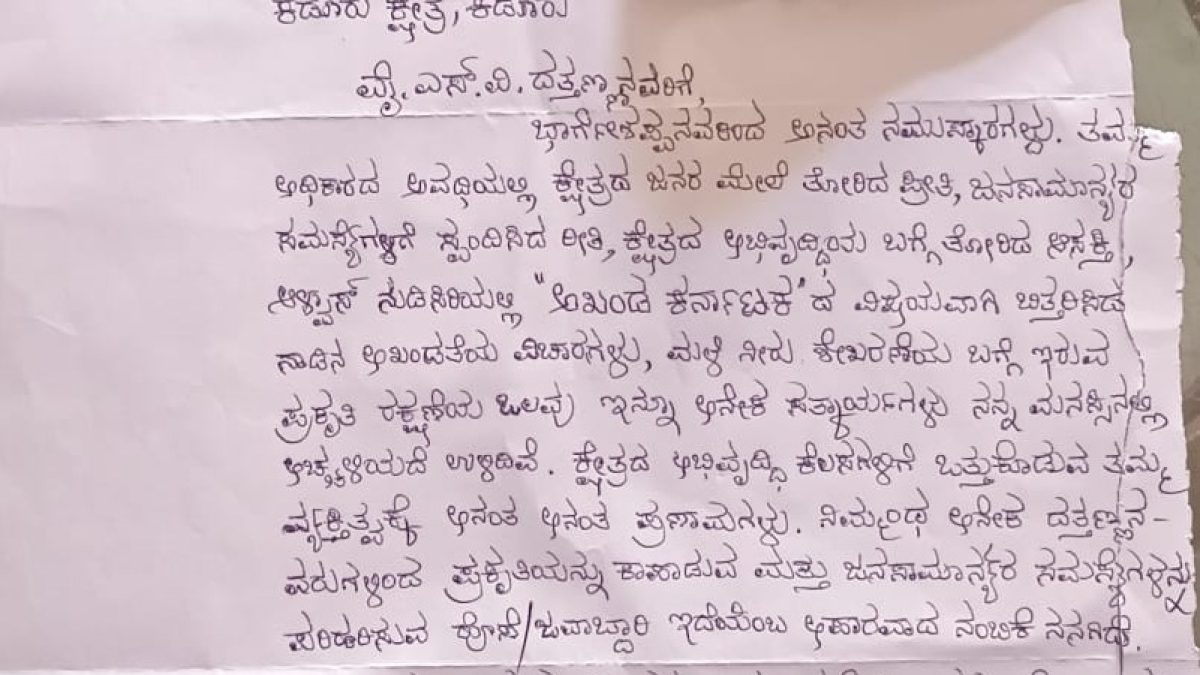 ಕಡೂರು ಕ್ಷೇತ್ರ, ಕಡೂರು
ವೈ. ಎಸ್. ವಿ. ದತ್ತಣ್ಣನವರಿಗೆ,
ಅನಂತ ನಮಸ್ಕಾರಗಳು. ತಮ್ಮ
ಅಧಿಕಾರದ ಅವಧಿಯಲ್ಲಿ ಕ್ಷೇತ್ರದ ಜನರ ಮೇಲೆ ತೋರಿದ ಪ್ರೀತಿ, ಜನಸಾಮಾನ್ಯರ
ಸಮಸ್ಯೆಗಳಿಗೆ ಸ್ಪಂದಿಸಿದ ರೀತಿ, ಕ್ಷೇತ್ರದ ಅಭಿವೃದ್ಧಿಯ ಬಗ್ಗೆ ತೋರಿದ ಆಸಕ್ತಿ,
ಆಳ್ವಾಸ್ ನುಡಿಸಿರಿಯಲ್ಲಿ "ಅಖಂಡ ಕರ್ನಾಟಕ"ದ ವಿಷಯವಾಗಿ ಬಿತ್ತರಿಸಿದ
ನಾಡಿನ ಅಖಂಡತೆಯ ವಿಚಾರಗಳು, ಮಳೆ ನೀರು ಶೇಖರಣೆಯ ಬಗ್ಗೆ ಇರುವ
ಪ್ರಕೃತಿ ರಕ್ಷಣೆಯ ಒಲವು ಇನ್ನೂ ಅನೇಕ ಸತ್ಕಾರ್ಯಗಳು ನನ್ನ ಮನಸ್ಸಿನಲ್ಲಿ
ಅಚ್ಚಳಿಯದೆ ಉಳಿದಿವೆ. ಕ್ಷೇತ್ರದ ಅಭಿವೃದ್ಧಿ ಕೆಲಸಗಳಿಗೆ ಒತ್ತುಕೊಡುವ ತಮ್ಮ
ವ್ಯಕ್ತಿತ್ವಕ್ಕೆ ಅನಂತ ಅನಂತ ಪ್ರಣಾಮಗಳು. ನಿಮ್ಮಂಥ ಅನೇಕ ದತ್ತಣ್ಣನ-
ವರುಗಳಿಂದ ಪ್ರಕೃತಿಯನ್ನು ಕಾಪಾಡುವ ಮತ್ತು ಜನಸಾಮಾನ್ಯರ ಸಮಸ್ಯೆಗಳನ್ನು
ಪರಿಹರಿಸುವ ಹೊಣೆ/ಜವಾಬ್ದಾರಿ ಇದೆಯೆಂಬ ಅಪಾರವಾದ ನಂಬಿಕೆ ನನಗಿದೆ.